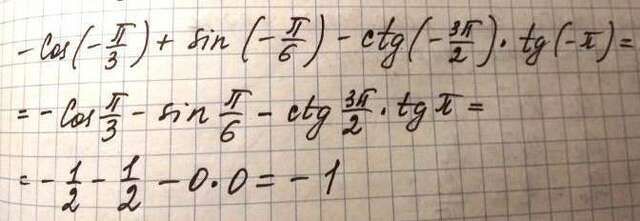 -cos(-π/3) + sin(-π/6) - ctg(-3π/2) · tg(-π) =
= -cos π/3 - sin π/6 - ctg 3π/2 · tg π =
= -1/2 - 1/2 - 0·0 = -1